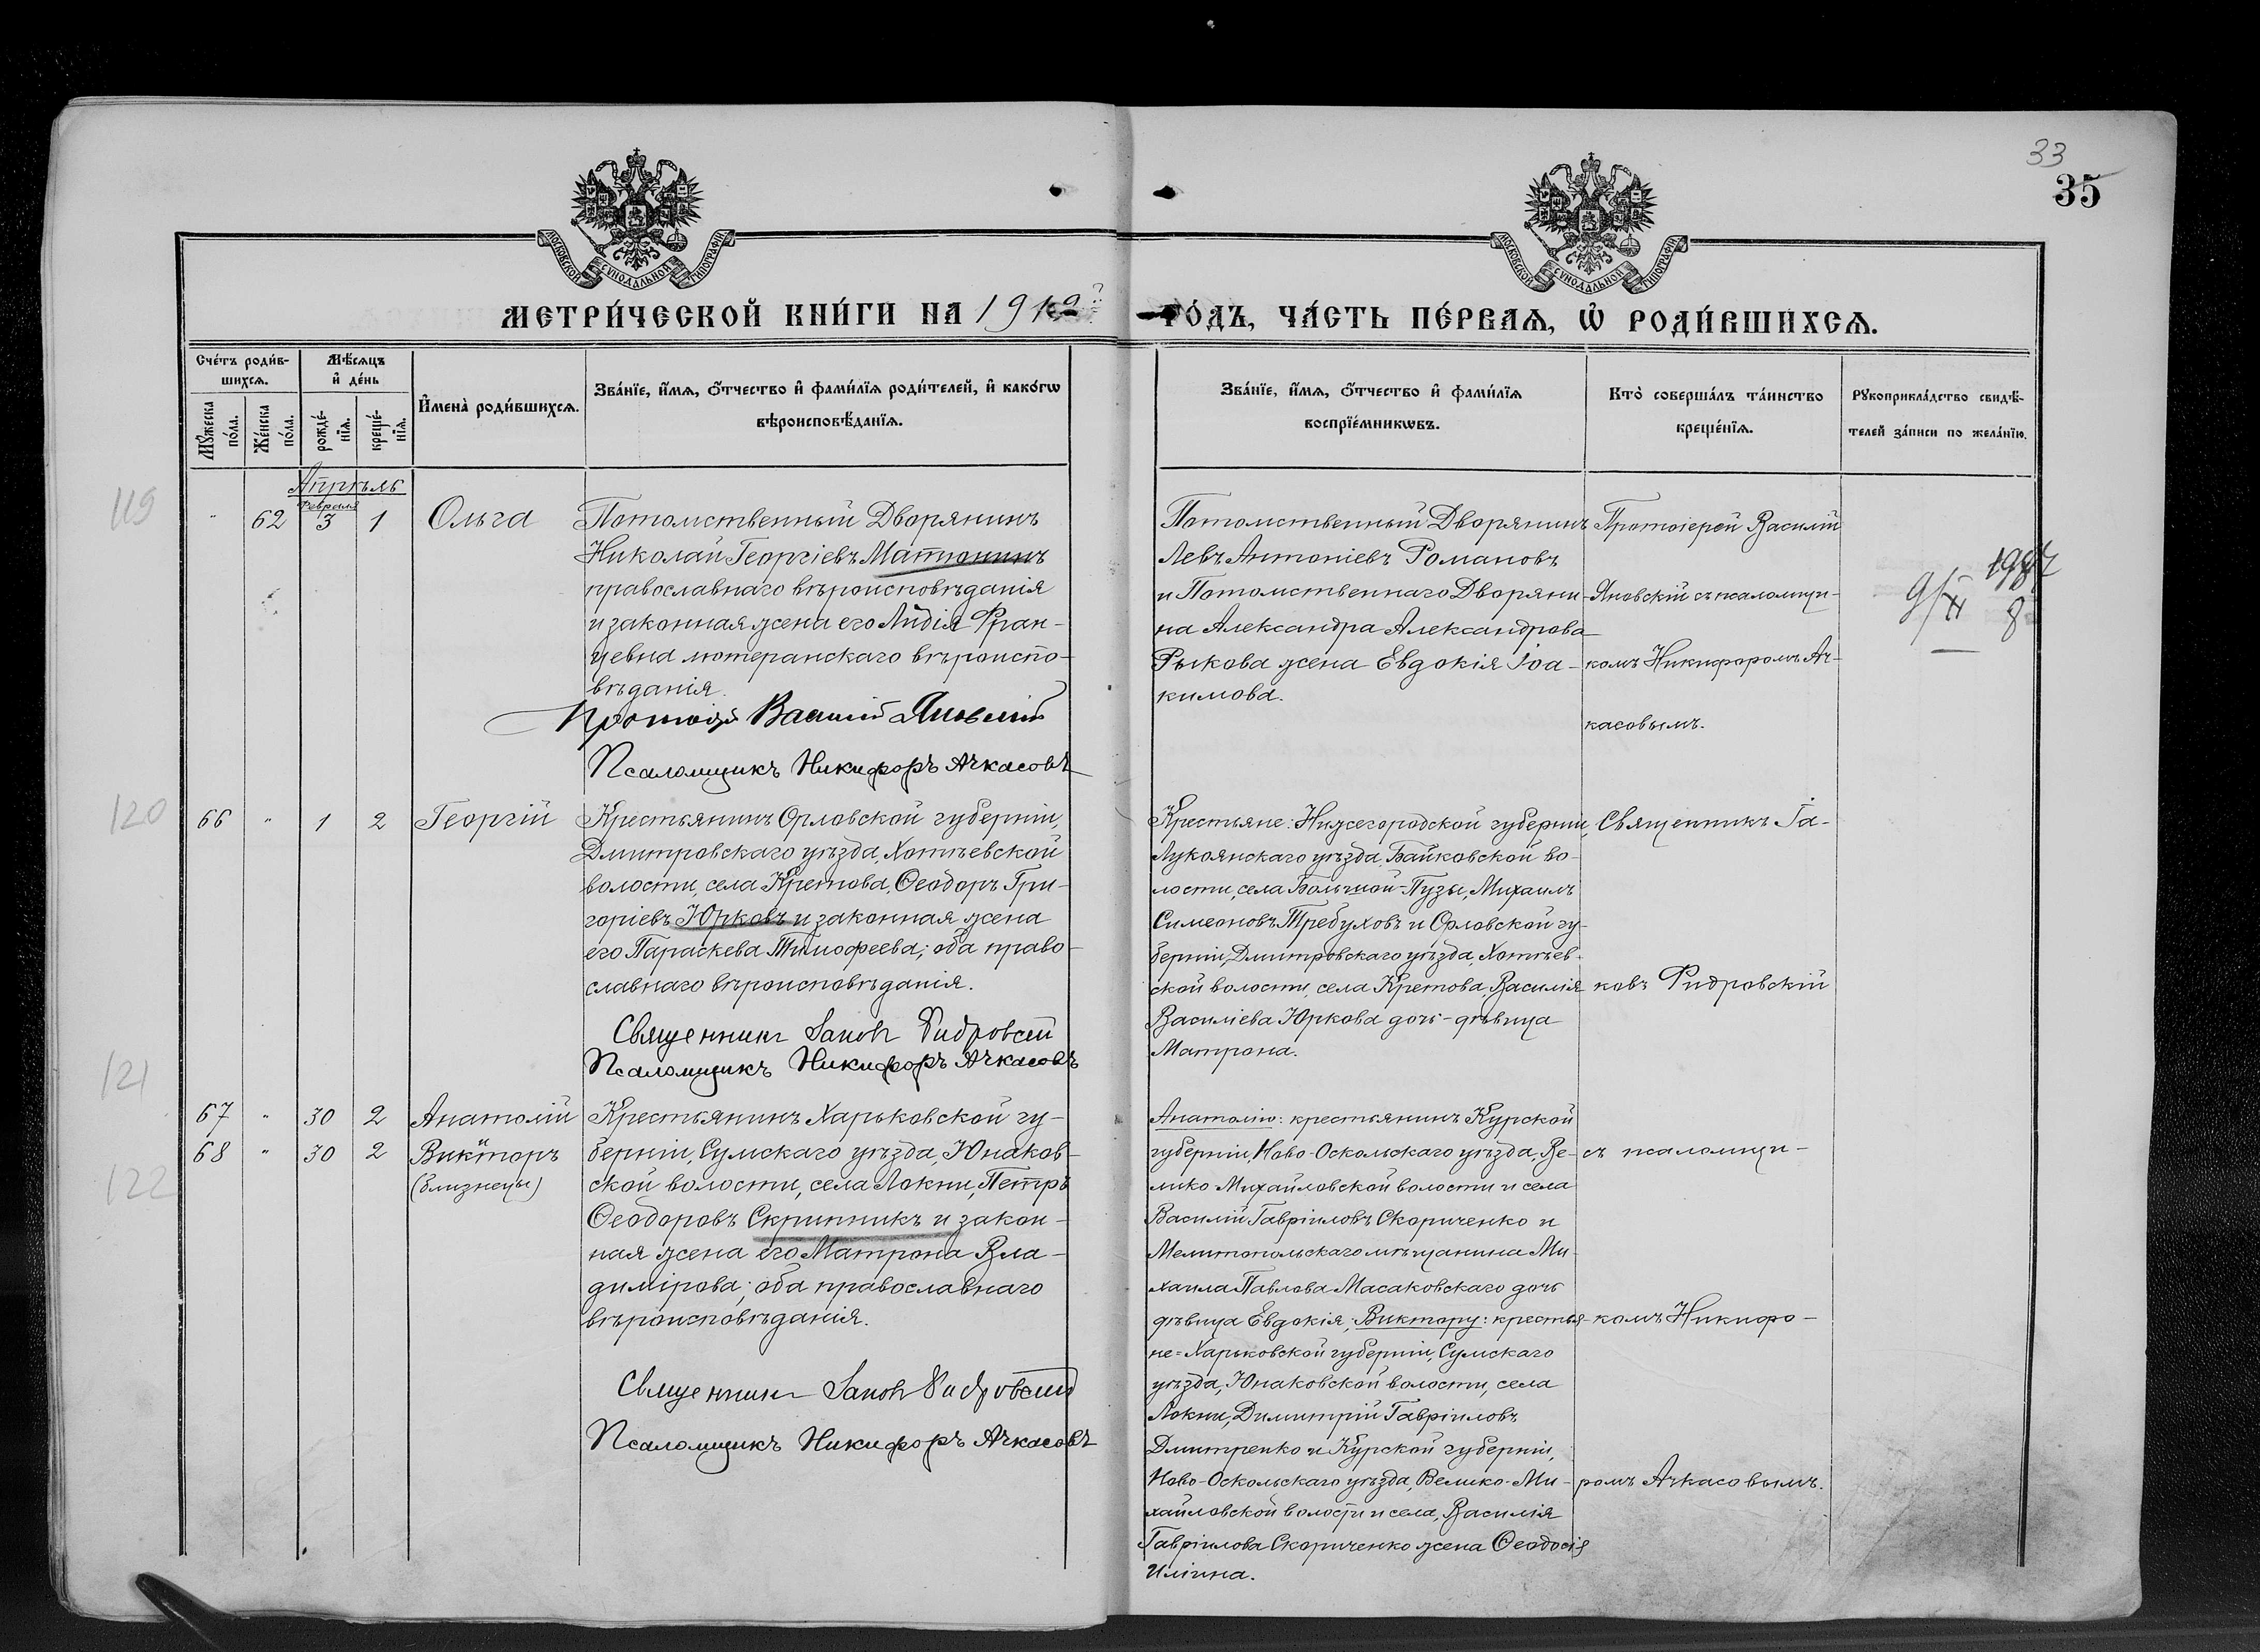 33
35
МОСКОВСКОЙ СѴНОДАЛЬНОЙ ТИПОГРАФІИ
МОСКОВСКОЙ СѴНОДАЛЬНОЙ ТИПОГРАФІИ
МЕТРИ́ЧЕСКОЙ КНИ́ГИ НА 1912
ГО́ДЪ, ЧА́СТЬ ПЕ́РВАѦ, Ѡ҆ РОДИ́ВШИХСѦ.
Сче́тъ роди́в-
шихсѧ.
Мꙋ́жеска
по́ла.
Же́нска
по́ла.
Мѣ́сѧцъ
и҆ де́нь
рожде́-
нїѧ.
креще́-
нїѧ.
И҆мена̀ роди́вшихсѧ.
Зва́нїе, и҆́мѧ, ѻ҆́тчество и҆ фами́лїѧ роди́телей, и҆ како́гѡ
вѣроисповѣ́данїѧ.
Зва́нїе, и҆́мѧ, ѻ҆́тчество и҆ фами́лїѧ
воспрїе́мникѡвъ.
Кто̀ соверша́лъ та́инство
креще́нїѧ.
Рꙋкоприкла́дство свидѣ́-
телей за́писи по жела́нїю.
Апрѣль
Февраля
119
" 62 3 1 Ольга
Потомственный Дворянинъ
Николай Георгіевъ Матюнинъ
православнаго вѣроисповѣданія
и законная жена его Лидія Фран-
цевна лютеранскаго вѣроиспо-
вѣданія.
Протоіерей Василій Яновскій
Псаломщикъ Никифоръ Ачкасовъ
Потомственный Дворянинъ
Левъ Антоніевъ Романовъ
и Потомственнаго Дворяни-
на Александра Александрова
Рыкова жена Евдокія Іоа-
кимова.
Протоіерей Василій
Яновскій съ псаломщи-
комъ Никифоромъ Ач-
касовымъ.
120
66 " 1 2 Георгій
Крестьянинъ Орловской губерніи,
Дмитровскаго уѣзда, Хотѣевской
волости, села Кретова, Ѳеодоръ Гри-
горіевъ Юрковъ и законная жена
его Параскева Тимофеева; оба право-
славнаго вѣроисповѣданія.
Священникъ Іаковъ Фидровскій
Псаломщикъ Никифоръ Ачкасовъ
Крестьяне: Нижегородской губерніи,
Лукоянскаго уѣзда, Байковской во-
лости, села Большой-Пузы, Михаилъ
Симеоновъ Требуховъ и Орловской гу-
берніи, Дмитровскаго уѣзда, Хотѣев-
ской волости, села Кретова, Василія
Василіева Юркова дочь-дѣвица
Матрона.
Священникъ Іа-
ковъ Фидровскій
121
122
67 " 30 2 Анатолій
и
68 " 30 2 Викторъ
(близнецы)
Крестьянинъ Харьковской гу-
берніи, Сумскаго уѣзда, Юнаков-
ской волости, села Локни, Петръ
Ѳеодоровъ Скрипникъ и закон-
ная жена его Матрона Вла-
димірова; оба православнаго
вѣроисповѣданія.
Священникъ Іаковъ Фидровскій
Псаломщикъ Никифоръ Ачкасовъ
Анатолію: крестьянинъ Курской
губерніи, Ново-Оскольскаго уѣзда, Ве-
лико Михайловской волости и села
Василій Гавріиловъ Скориченко и
Мелитопольскаго мѣщанина Ми-
хаила Павлова Масаковскаго дочь
дѣвица Евдокія; Виктору: крестья-
не=Харьковской губерніи, Сумскаго
уѣзда, Юнаковской волости, села
Локни, Димитрій Гавріиловъ
Дмитренко и Курской губерніи,
Ново-Оскольскаго уѣзда, Велико-Ми-
хайловской волости и села, Василія
Гавріилова Скориченко жена Ѳеодосія
Иліина.
съ псаломщи-
комъ Никифо-
ромъ Ачкасовымъ.